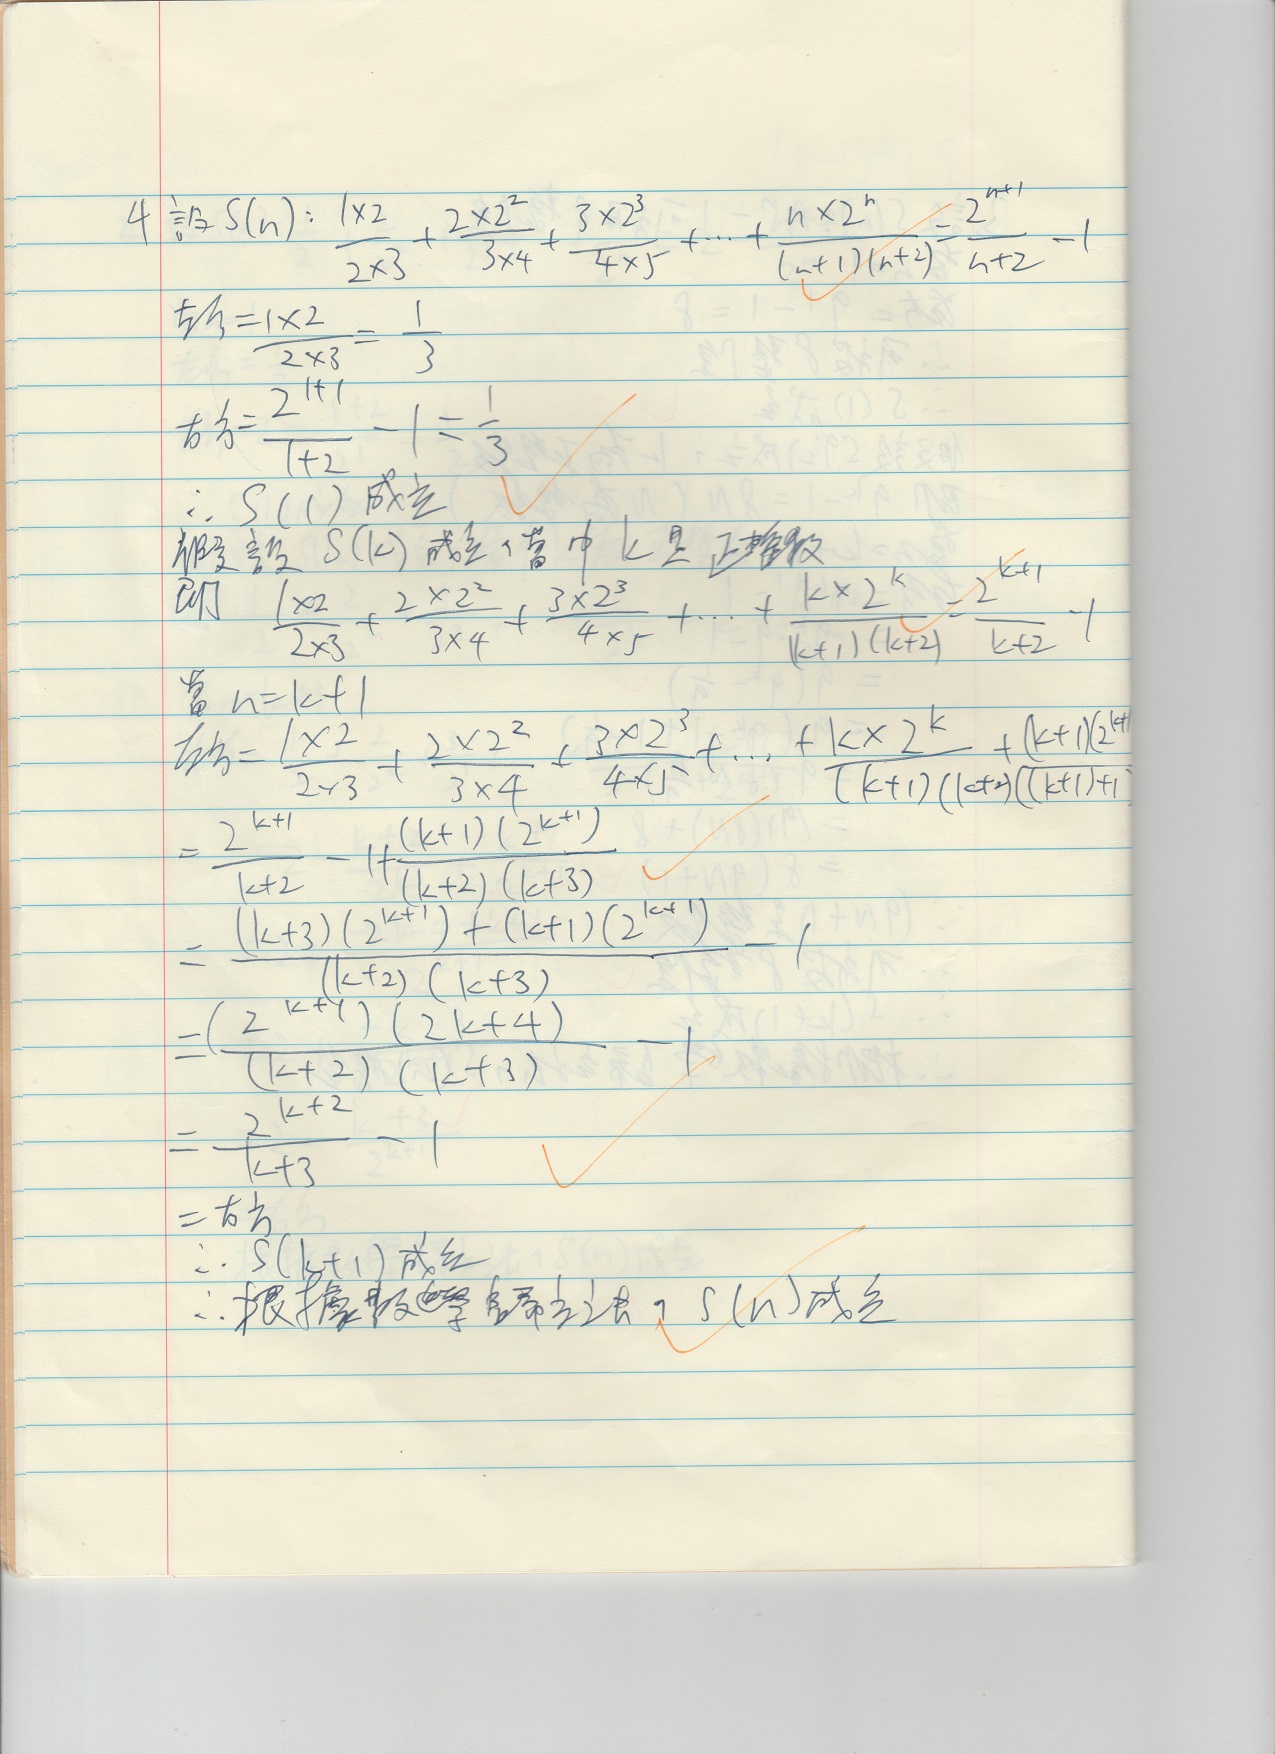 4 設 S(n): (1×2)/(2×3) + (2×2^2)/(3×4) + (3×2^3)/(4×5) + ... + (n×2^n)/((n+1)(n+2)) = 2^(n+1)/(n+2) - 1
左方 = (1×2)/(2×3) = 1/3
右方 = 2^(1+1)/(1+2) - 1 = 1/3
∴ S(1) 成立
假設 S(k) 成立，當中 k 是 正整數
即 (1×2)/(2×3) + (2×2^2)/(3×4) + (3×2^3)/(4×5) + ... + (k×2^k)/((k+1)(k+2)) = 2^(k+1)/(k+2) - 1
當 n=k+1
左方 = (1×2)/(2×3) + (2×2^2)/(3×4) + (3×2^3)/(4×5) + ... + (k×2^k)/((k+1)(k+2)) + (k+1)(2^(k+1 / ((k+1)+1
= 2^(k+1)/(k+2) - 1 + ((k+1)(2^(k+1)))/((k+2)(k+3))
= ((k+3)(2^(k+1)) + (k+1)(2^(k+1)))/((k+2)(k+3)) - 1
= ((2^(k+1))(2k+4))/((k+2)(k+3)) - 1
= 2^(k+2)/(k+3) - 1
= 右方
∴ S(k+1) 成立
∴ 根據數學歸納法，S(n) 成立